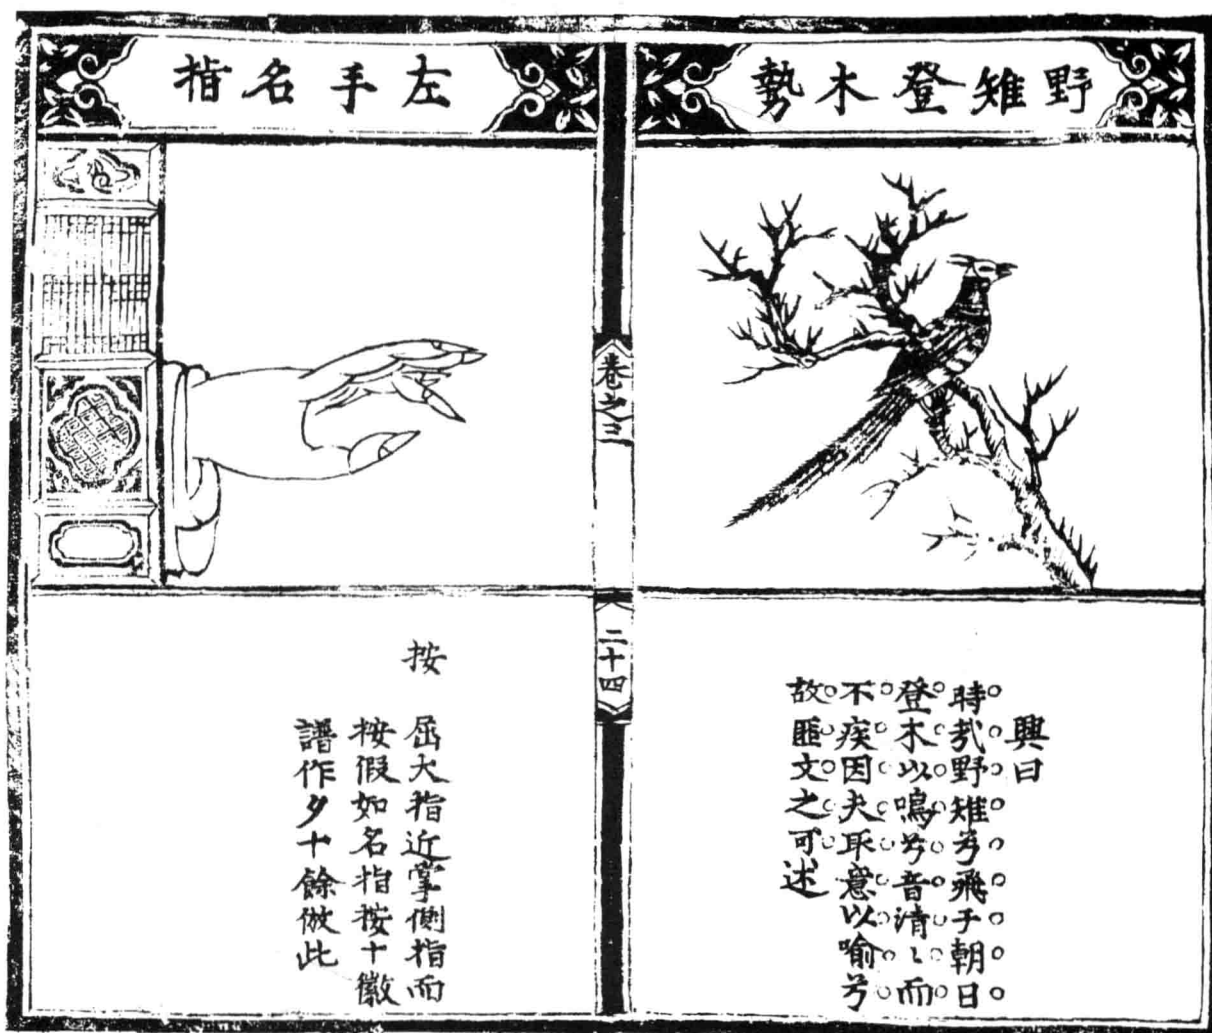 野雉登木勢
興曰
時哉野雉兮飛于朝日
登木以鳴兮音清〻而
不疾因夫取意以喻兮
故匪文之可述
卷之三
二十四
左手名指
按
屈大指近掌側指而
按假如名指按十徽
譜作夕十餘倣此